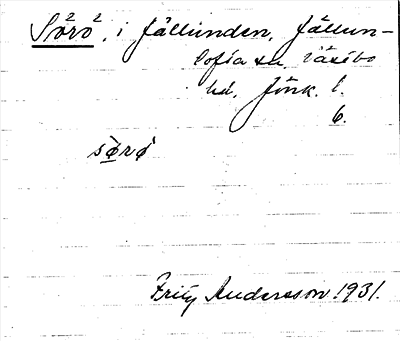 Sörö, i Fällunden, Fällun-
sofia sn, Västbo
hd, Jönk. l.
6.
sørø
Fritz Andersson 1931.